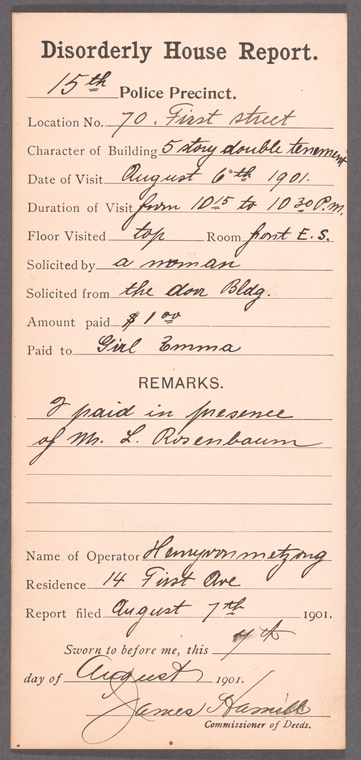 Disorderly House Report.
15th Police Precinct.
Location No. 70. First street
Character of Building 5 story double tenement
Date of Visit August 6th 1901.
Duration of Visit from 10 15 to 10 30 P.M.
Floor Visited top Room front E.S.
Solicited by a woman
Solicited from the door Bldg.
Amount paid $1 00
Paid to Girl Emma
REMARKS.
I paid in presence
of Mr. L. Rosenbaum
Name of Operator Henry von metzong
Residence 14 First Ave
Report filed August 7th 1901.
Sworn to before me, this 7th
day of August 1901.
James Hamill
Commissioner of Deeds.